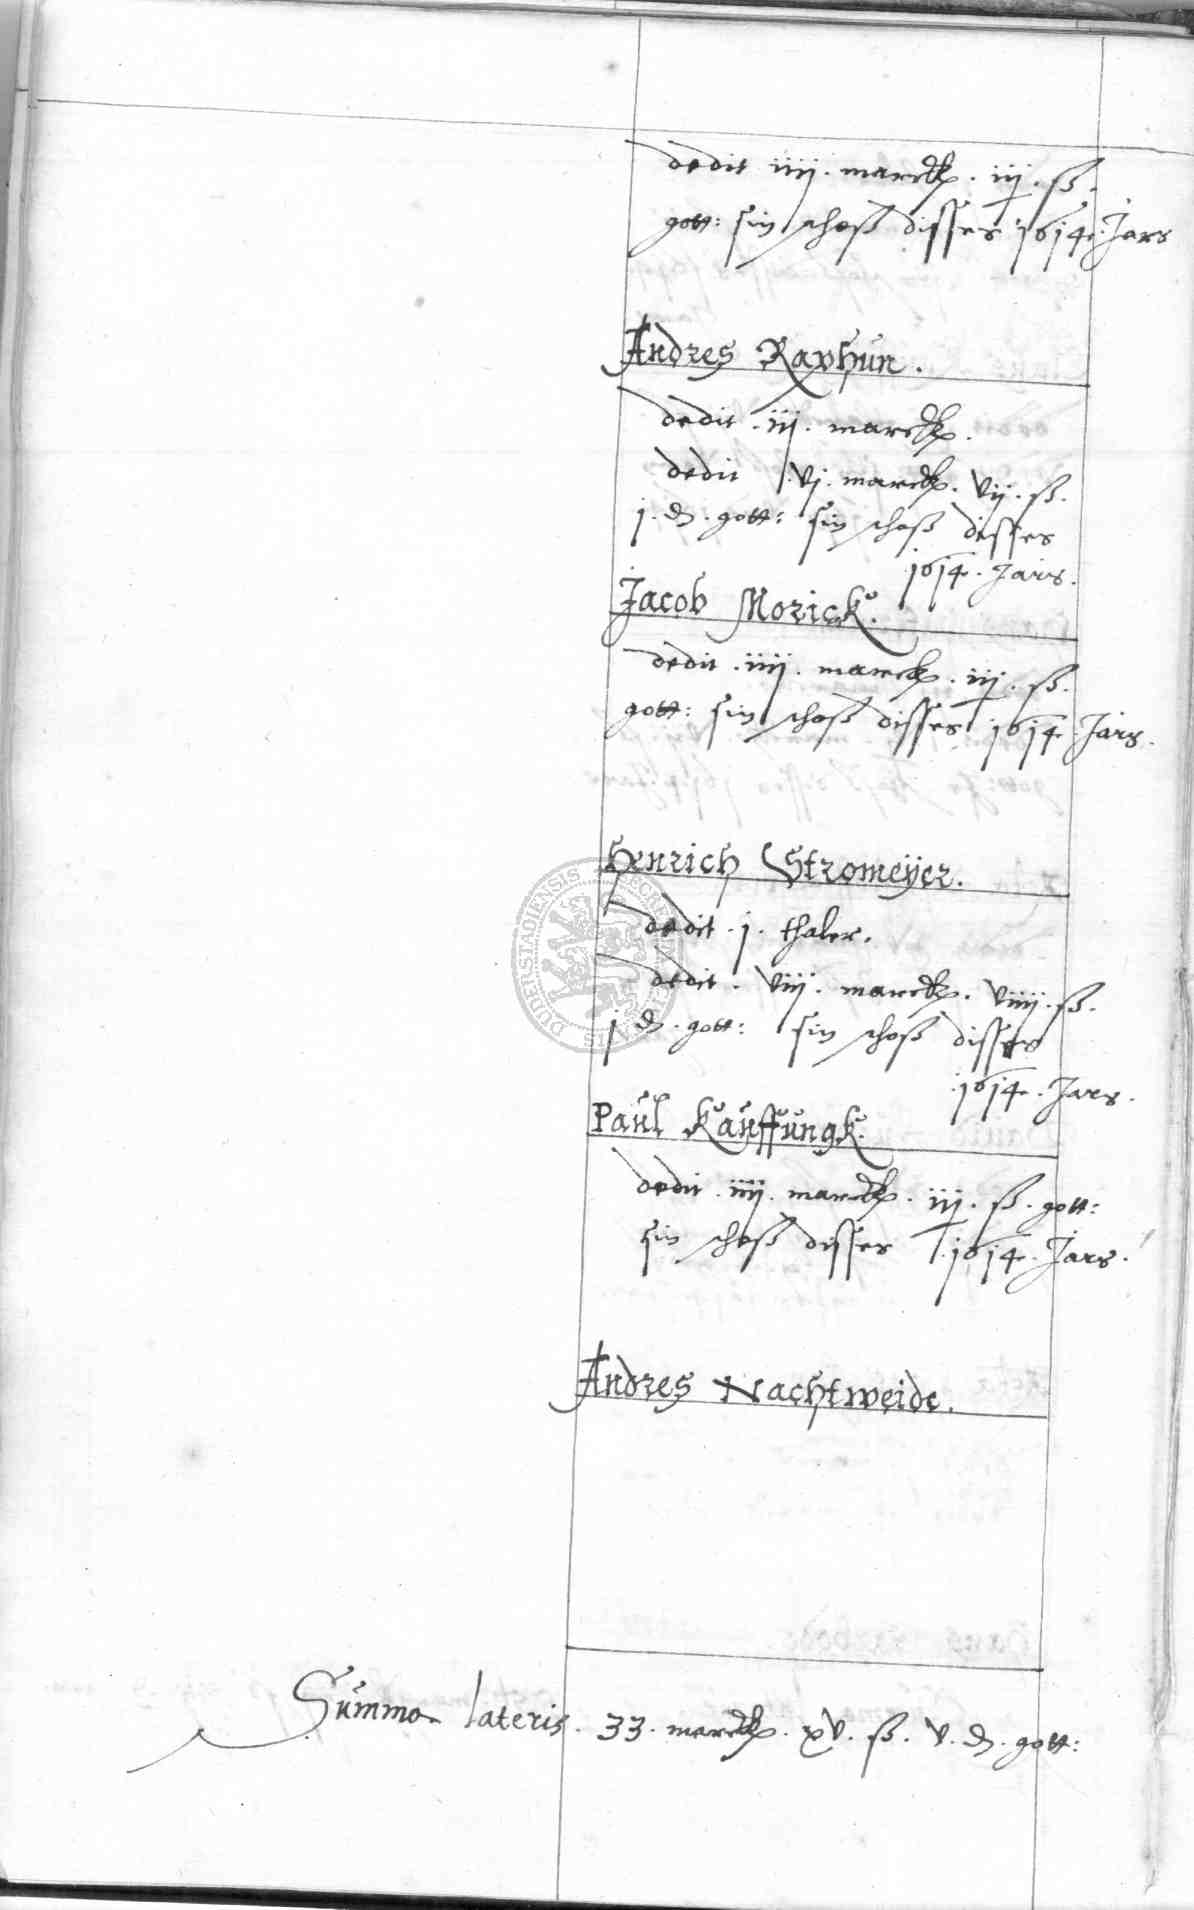 dedit iiij. marck. iij. ß.
gott: sin schoß disses 1614. Jars
Andres Raphun.
dedit. iij. marck.
dedit vj. marck. vij. ß.
j. d. gott: sin schoß disses
1614. Jars.
Jacob Morick.
dedit. iiij. marck. iij. ß.
gott: sin schoß disses 1614 Jars.
Henrich Stromeyer.
dedit. j. thaler.
dedit. viij. marck. viiij. ß.
j d. gott: sin schoß disses
1614. Jars.
Paul Kauffungk.
dedit. iiij. marck. iij. ß. gott:
sin schoß disses 1614. Jars.
Andres Nachtweide.
Summa lateris. 33. marck. xv. ß. v. d. gott: